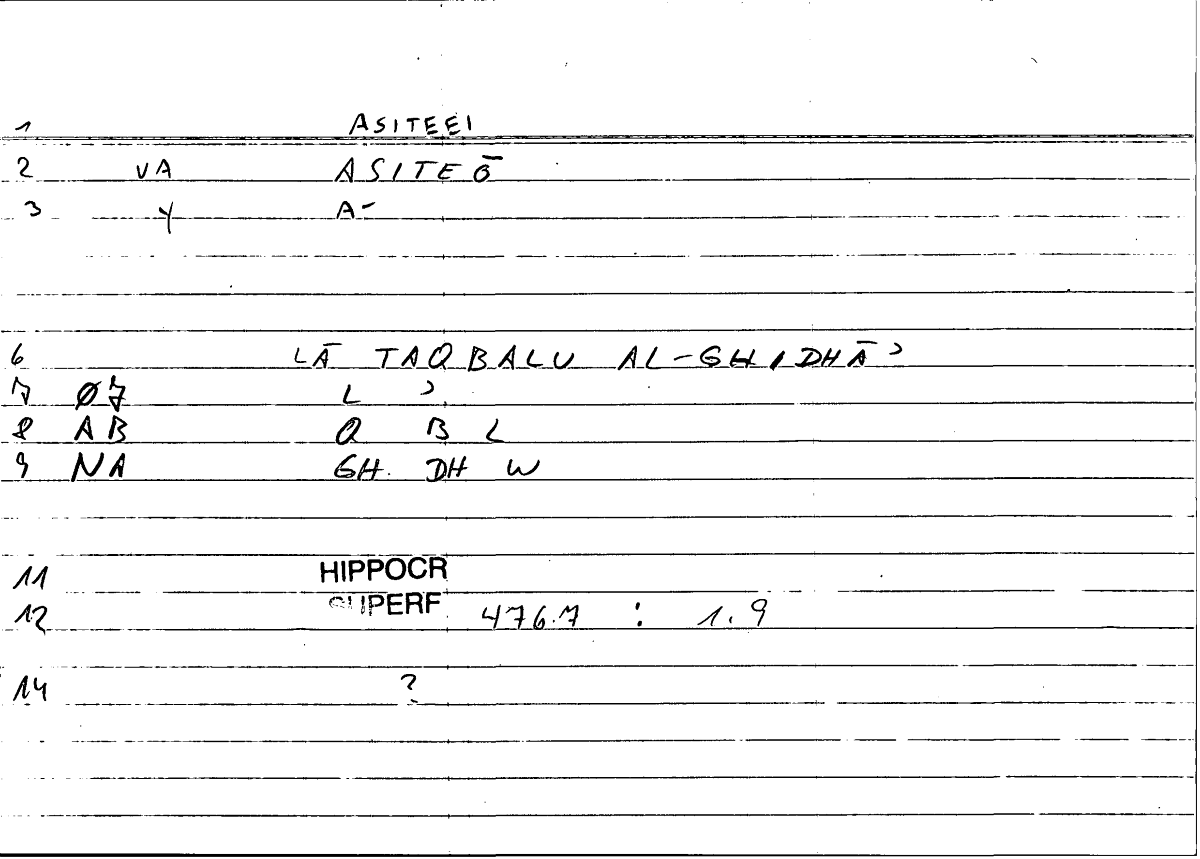 1 ASITEEI
2 VA ASITEŌ
3 Y A-
6 LĀ TAQBALU AL-GHIDHĀʾ
7 Ø7 L ʾ
8 AB Q B L
9 NA GH. DH W
11 HIPPOCR
12 SUPERF 476.7 : 1.9
14 ?